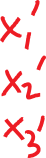 x₁'
x₂'
x₃'